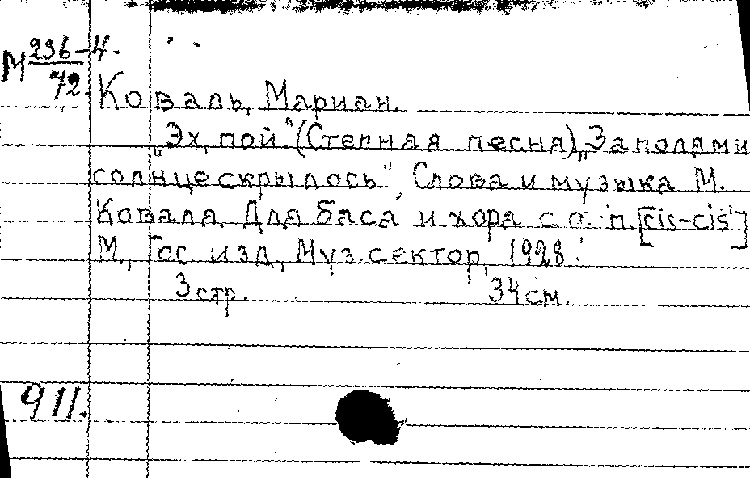 М 236-4.
72.
Коваль, Мариан.
„Эх, пой" (Степная песня) „За полями
солнце скрылось", Слова и музыка М.
Коваля. Для баса и хора с ф.п. [cis-cis']
М., Гос. изд., Муз. сектор, 1928.
3 стр. 34 см.
911.